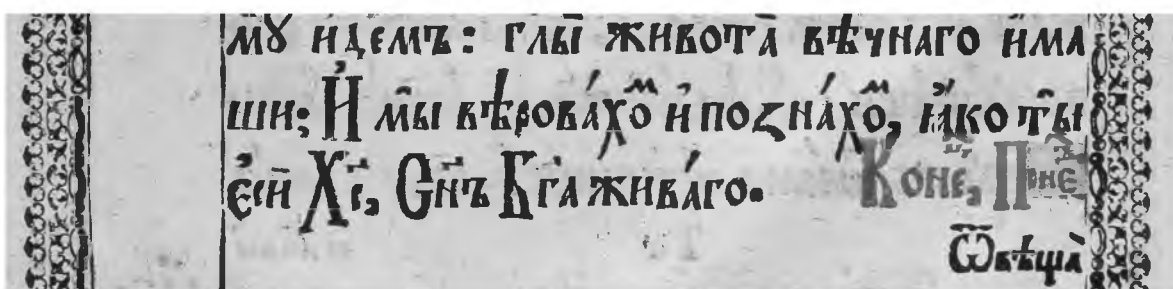 мꙋ̀ и́демъ: гл҃ы живота̀ вѣчнаго и́ма
ши; И҆ мы̑ вѣрова́хоⷨ и҆ позна́хоⷨ, ꙗ҆́ко ты̑
є҆сѝ Х҃е, Сн҃ъ Бг҃а жива́го. Коне́ⷰ҇, Поне
Ѿвѣща̀